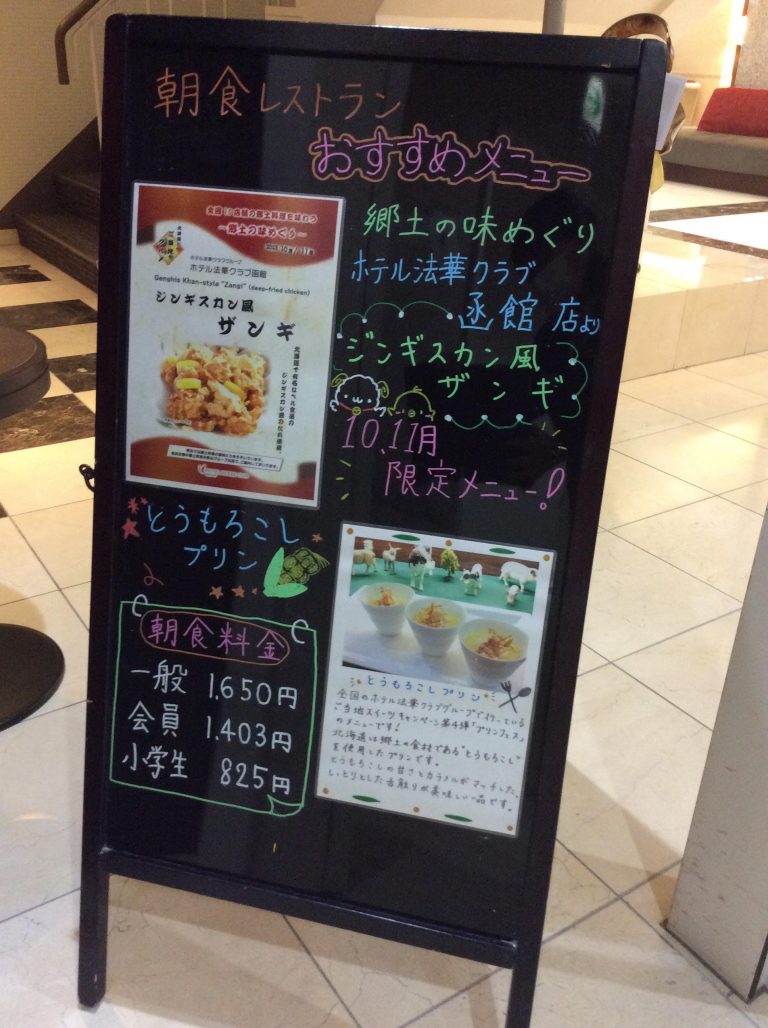 朝食レストラン
おすすめメニュー
郷土の味めぐり
ホテル法華クラブ
函館 店より
ジンギスカン風
ザンギ
10、11月
限定メニュー!
～郷土の味めぐり～
ホテル法華クラブグループ
ホテル法華クラブ函館
Genghis Khan-style "Zangi" (deep-fried chicken)
ジンギスカン風
ザンギ
とうもろこし
プリン
朝食料金
一般 1,650円
会員 1,403円
小学生 825円
とうもろこしプリン
全国のホテル法華クラブグループで行っている
ご当地スイーツキャンペーン第4弾「プリンフェス」
のメニューです!
北海道は郷土の食材である"とうもろこし"
を使用したプリンです。
とうもろこしの甘さとカラメルがマッチした、
しっとりとした舌触りが美味しい一品です。